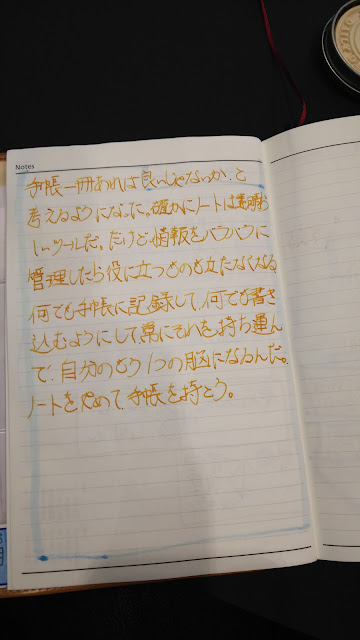 Notes
手帳一冊あれば良いじゃないか、と
考えるようになった。確かにノートは素晴ら
しいツールだ。だけど情報をバラバラに
管理したら役に立つものも立たなくなる
何でも手帳に記録して、何でも書き
込むようにして常にそれを持ち運ん
で、自分のもう1つの脳になるんだ。
ノートをやめて、手帳を持とう。